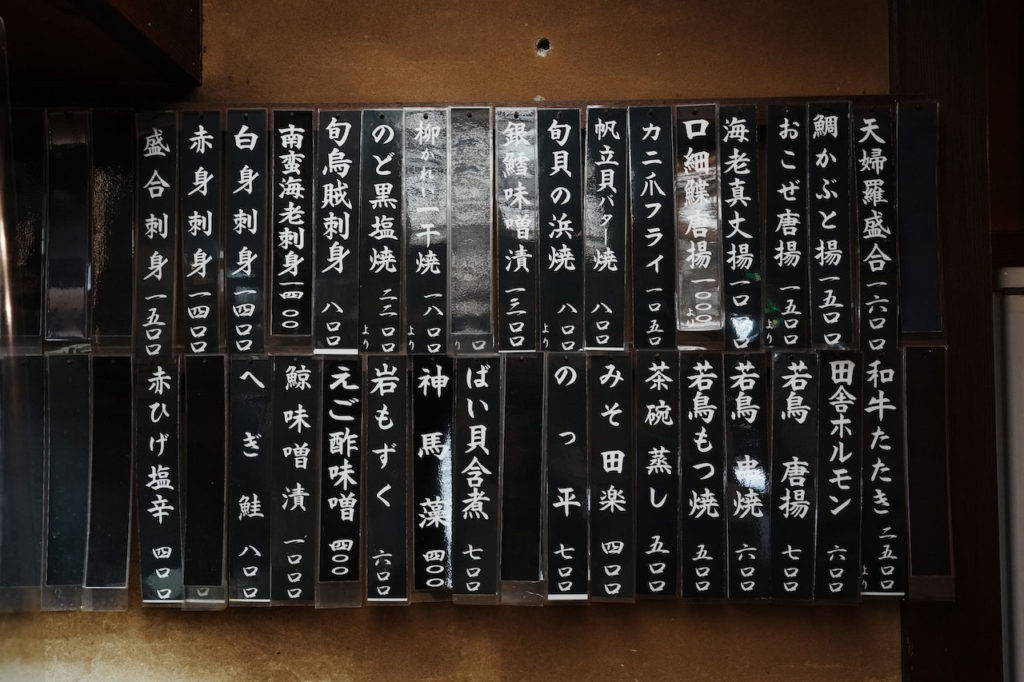 天婦羅盛合 一六〇〇
鯛かぶと揚 一五〇〇
おこぜ唐揚 一五〇〇より
海老真丈揚
口細鰈唐揚 一〇〇〇より
カニ爪フライ 一〇五〇
帆立貝バター焼 八〇〇
旬貝の浜焼 八〇〇より
銀鱈味噌漬 一三〇〇
より
柳かれい一干焼 一八〇〇
のど黒塩焼 二二〇〇より
旬烏賊刺身 八〇〇
南蛮海老刺身 一四〇〇
白身刺身 一四〇〇
赤身刺身 一四〇〇
盛合刺身 一五〇〇
和牛たたき 二五〇〇より
田舎ホルモン 六〇〇
若鳥唐揚 七〇〇
若鳥串焼 六〇〇
若鳥もつ焼 五〇〇
茶碗蒸し 五〇〇
みそ田楽 四〇〇
のっ平 七〇〇
ばい貝含煮 七〇〇
神馬藻 四〇〇
岩もずく 六〇〇
えご酢味噌 四〇〇
鯨味噌漬 一〇〇〇
へぎ鮭 八〇〇
赤ひげ塩辛 四〇〇